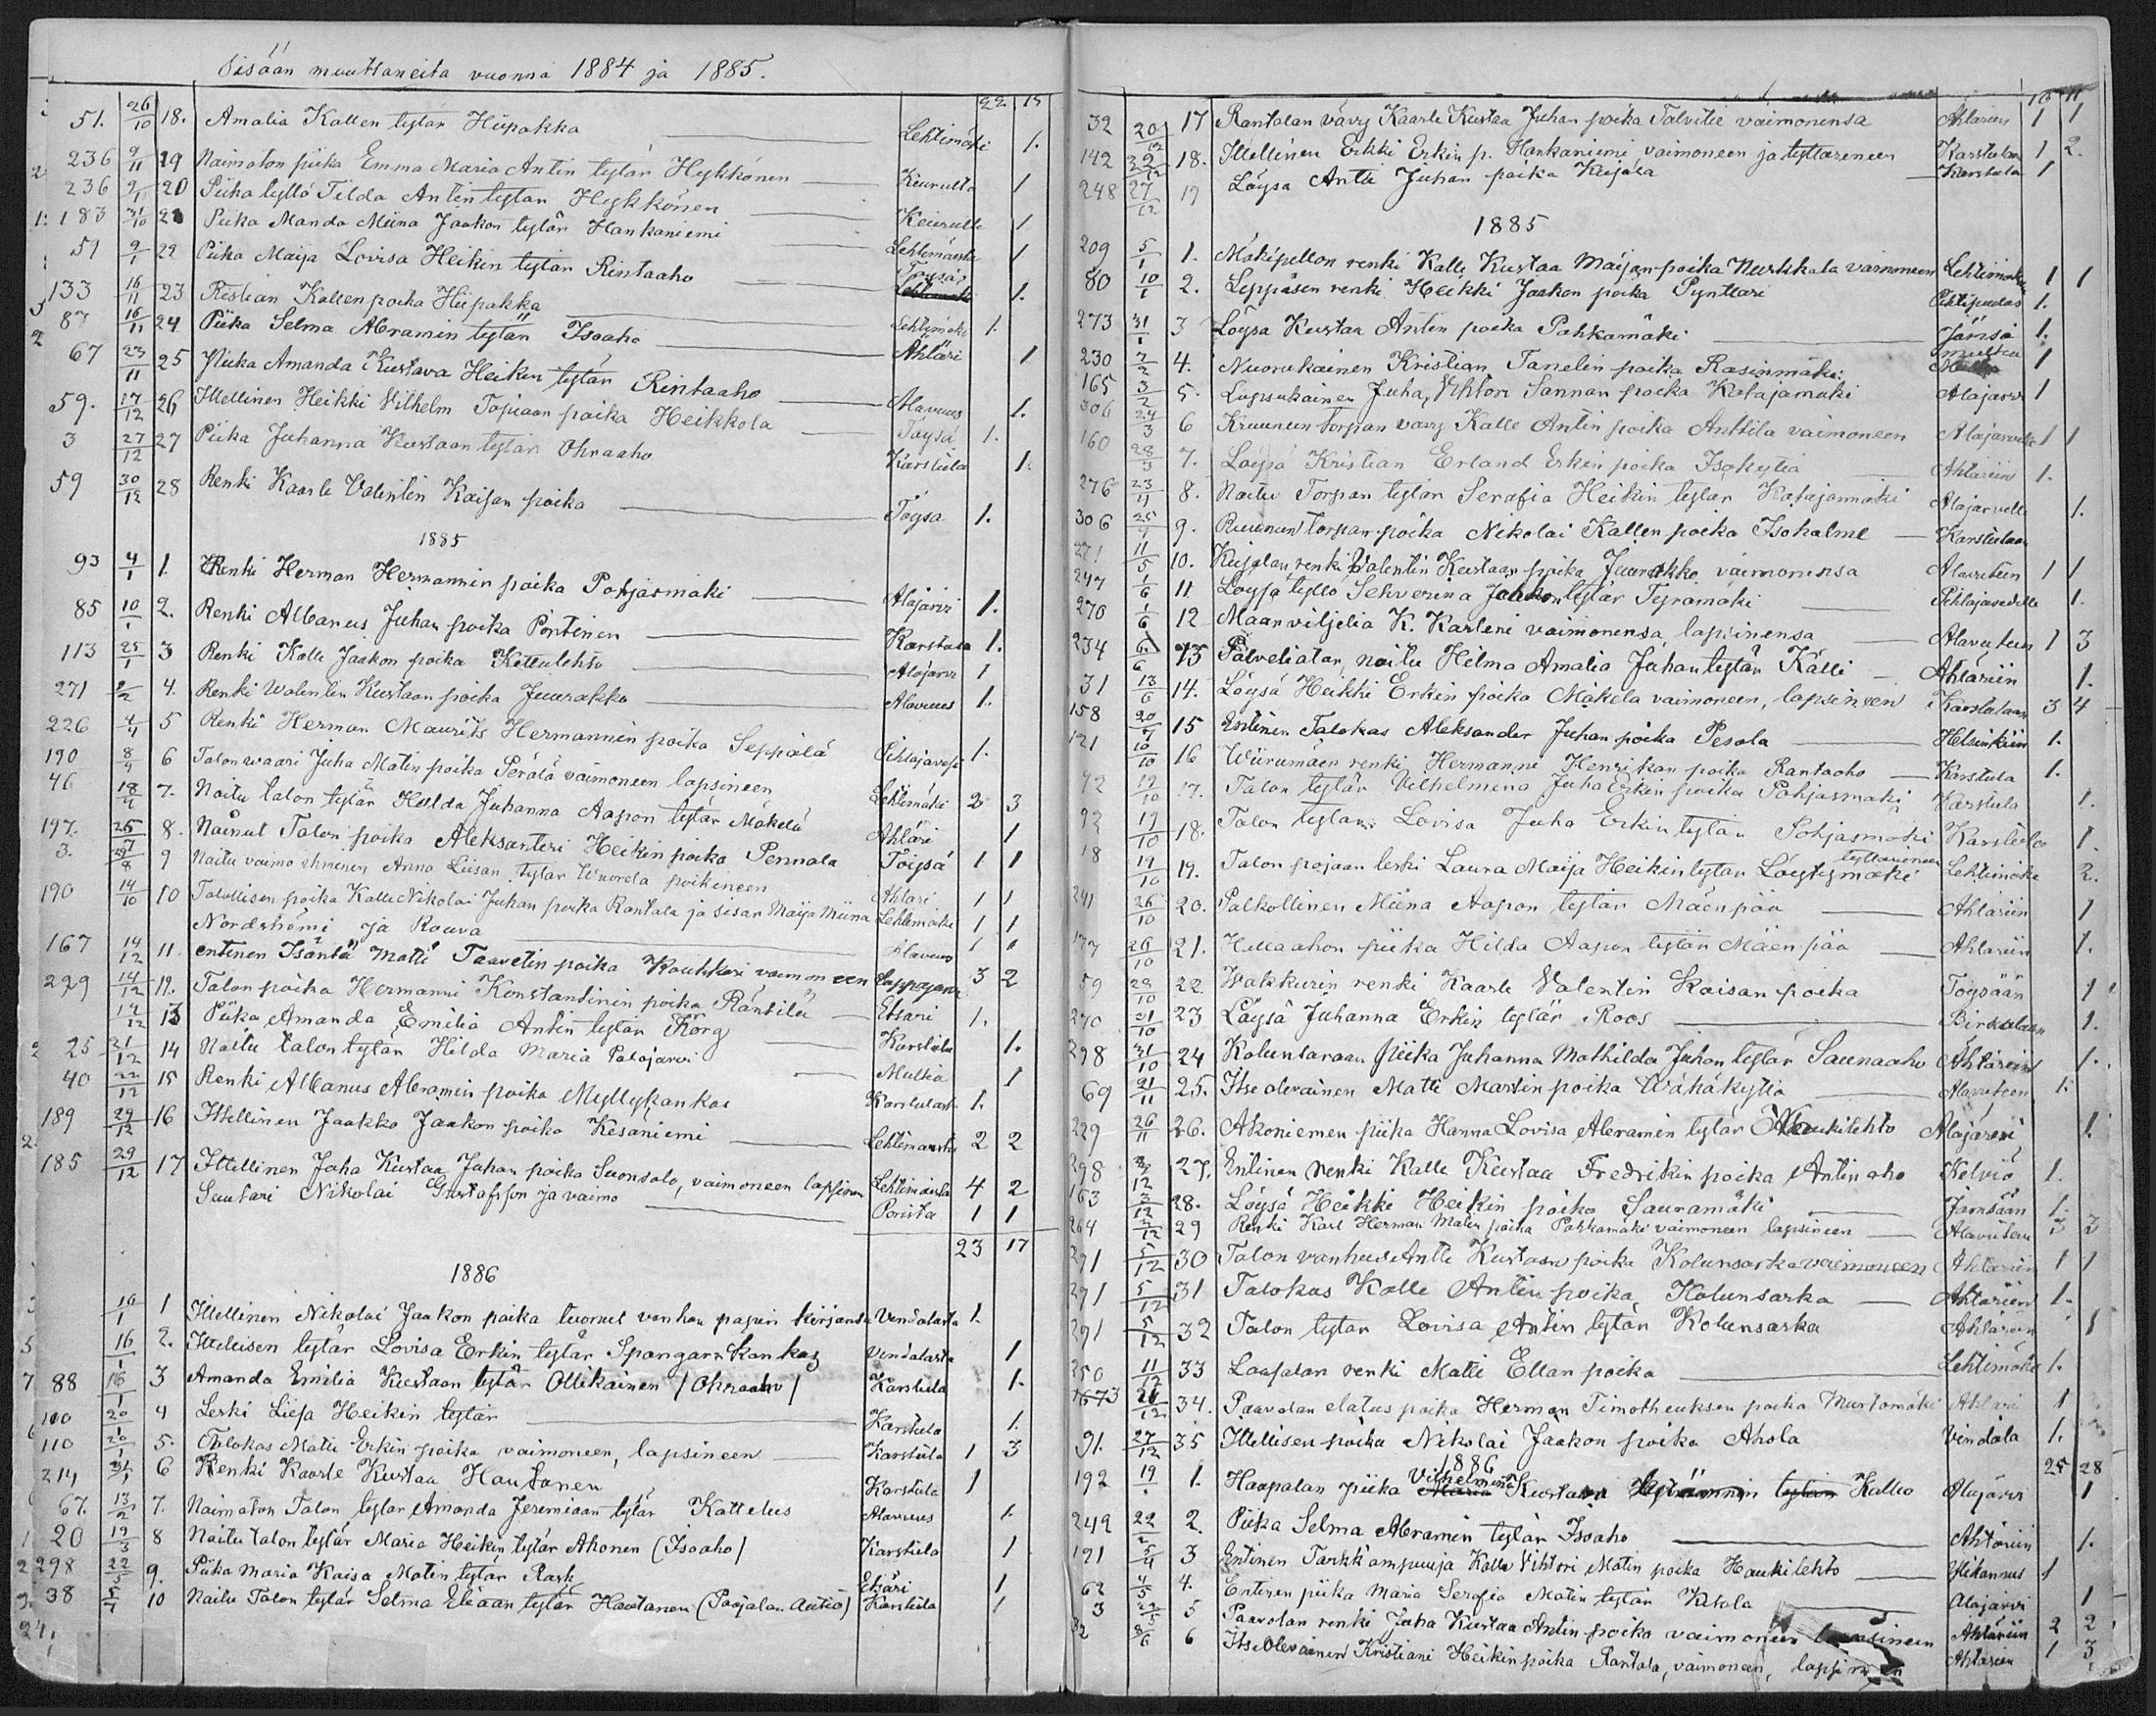 Sisään muuttaneita vuonna 1884 ja 1885.
22. 15
51. 26/10 18. Amalia Kallen tytär Hiipakka Lehtimäki 1.
236 9/11 19 Naimaton piika Emma Maria Antin tytär Hykkönen Kiurulta 1
236 9/11 20 Piika tyttö Tilda Antin tytar Hykkönen Keiurulta 1
183 31/10 21 Piika Manda Miina Jaakon tytär Hankaniemi Lehtimäelta 1
59 9/1 22 Piika Maija Lovisa Heikin tytär Rintaaho Töysä 1.
133 16/11 23 Ristian Kallenpoika Hiipakka Lehtimäki 1.
87 16/11 24 Piika Selma Abramin tytär Isoaho Ähtäri 1
67 23/11 25 Piika Amanda Kustava Heikin tytär Rintaaho Alavuus 1.
59. 17/12 26 Ittellinen Heikki Vilhelm Topiaan poika Heikkola Töysä 1.
3 27/12 27 Piika Juhanna Kustaan tytär Ohraaho Karstula 1.
59 30/12 28 Renki Kaarle Valentin Kaijan poika Töysa 1.
1885
93 4/1 1. Renki Herman Hermannin poika Pohjasmäki Alajärvi 1.
85 10/1 2. Renki Albanus Juhan poika Pöntinen Karstula 1.
113 25/1 3 Renki Kalle Jaakon poika Kellulehto Alajarvi 1
271 9/2 4. Renki Walentin Kustaan poika Juurakko Alavuus 1.
226 4/4 5 Renki Herman Maurits Hermannin poika Seppälä Pihlajavesi 1.
190 8/4 6 Talon waari Juha Matin poika Perälä vaimoneen lapsineen Lehtimäki 2 3
46 18/4 7. Naitu talon tytär Hulda Juhanna Aapon tytär Mäkelä Ähtäri 1
197. 25/7 8. Nainut Talon poika Aleksanteri Heikin poika Pennala Töysä 1 1
3. 29/8 9 Naitu vaimo ehmenen Anna Liisan tytär Wuorela poikineen Ähtari 1 1
190 14/10 10 Talollisen poika Kalle Nikolai Juhan poika Rantala ja sisar Maija Miina Lehtimäki 1 1
Nordströmi ja Rouva Alavuus 1 1
167 14/12 11. entinen Isäntä Matti Taavetin poika Kauhkari vaimoneen Lappajarvi 3 2
229 14/12 12. Talon poika Hermanni Konstantinin poika Räntilä Etsäri 1.
14/12 13 Piika Amanda Emilia Antin tytär Korg Karstula 1.
25 21/12 14 Naitu talon tytär Hilda Maria Palojarvi Multia 1
40 22/12 15 Renki Albanus Abramin poika Myllykankas Karstulast 1.
189 29/12 16 Ittellinen Jaakko Jaakon poika Kesäniemi Lehtimäelta 2 2
185 29/12 17 Ittellinen Juha Kustaa Juhan poika Suonsalo, vaimoneen lapsineen Lehtimäelta 4 2
Suutari Nikolai Gustafsson ja vaimo Porista 1 1
23 17
1886
16/1 1 Ittellinen Nikolai Jaakon poika tuonut vanhan papin kirjansa Vindalasta 1.
16/1 2. Ittellisen tytär Lovisa Erkin tytär Spångarn kankas Vindalasta 1
88 16/1 3 Amanda Emilia Kustaan tytär Ollikainen / Ohraaho / Karstula 1.
110 20/1 4 Leski Liisa Heikin tytär Karstula 1.
110 20/1 5. Ohlokas Matti Erkin poika vaimoneen, lapsineen Karstula 1 3
214 31/1 6 Renki Kaarle Kustaa Hautanen Karstula 1
67. 13/2 7. Naimaton Talon tytar Amanda Jeremiaan tytär Kattelus Alavuus 1.
20 19/3 8 Naitu talon tytär Maria Heikin tytär Ahonen (Isoaho) Karstula 1
298 22/5 9. Piika Maria Kaisa Matin tytär Rask Etsäri 1
38 5/7 10 Naitu Talon tytär Selma Eliaan tytär Hautanen (Paajalan Autio) Karstula 1
24.
16 11
32 20/12 17 Rantalan vävy Kaarle Kustaa Juhan poika Talvitie vaimonensa Ähtärien 1 1
142 22/12 18. Ittellinen Erkki Erkin p. Hankaniemi vaimoneen ja tyttäreneen Karstulan 1 2.
248 27/12 19 Löysä Antti Juhan poika Kujala Karstula 1
1885
209 5/1 1. Mäkipellon renki Kalle Kustaa Maijan poika Nurkkala vaimoneen Lehtimäki 1 1
80 10/1 2. Leppäsen renki Heikki Jaakon poika Pynttäri Pihtipudas 1.
273 31/1 3 Löysä Kustaa Antin poika Pahkamäki Jämsä 1.
230 2/2 4. Nuorukainen Kristian Tanelin poika Rasinmäki Multia 1
165 3/2 5. Lupsukainen Juha, Vihtori Sannan poika Katajamäki Alajarvi 1
306 24/3 6 Kruunun torpan vävy Kalle Antin poika Anttila vaimoneen Alajarvelle 1 1
160 28/3 7. Löysä Kristian Erland Erkin poika Isokytiä Ähtäriin 1.
276 23/4 8. Naitu Torpan tytär Serafia Heikin tytär Katajamäki Alajarvelle 1.
306 25/4 9. Ruunun torpan poika Nikolai Kallen poika Isohalme Karstulaan
271 11/5 10. Kujalan renki Valentin Kustaan poika Juurakko vaimonensa Alavuteen 1 1
247 1/6 11. Löysä tyttö Sehverina Jaakon tytär Tyramäki Pihlajavedelle 1.
270 1/6 12 Maanviljeliä K. Karleni vaimonensa lapsinensa Alavuteen 1 3
234 6/6 13 Palveliatar, naitu Hilma Amalia Juhan tytär Källi Ähtäriin 1.
31 13/6 14. Löysä Heikki Erkin poika Mäkelä vaimoneen, lapsineen Karstulaan 3 4
158 20/7 15 Entinen Talokas Aleksander Juhan poika Pesola Helsinkiin 1.
121 10/10 16 Wiirumäen renki Hermanni Henrikan poika Rantaaho Karstula 1.
92 19/10 17. Talon tytär Vilhelmina Juha Erkin poika Pohjasmäki Karstula 1.
92 19/10 18. Talon tytar Lovisa Juha Erkin tytär Pohjasmäki Karstula 1.
18 19/10 19. Talon pojaan leski Laura Maija Heikin tytar Löytysmäki tyttäreneen Lehtimäki 2.
241 26/10 20. Palkollinen Miina Aapon tytär Mäenpää Ähtäriin 1
177 26/10 21. Hullaahon piika Hilda Aapon tytär Mäenpää Ahtariin 1.
59 28/10 22. Wakkurin renki Kaarle Valentin Kaisan poika Töysään 1
270 31/10 23 Löysä Juhanna Erkin tytär Roos Birkalaan 1.
298 31/10 24 Kolunsaraan piika Juhanna Mathilda Juhan tytär Saunaaho Ähtäriin 1.
69 21/11 25. Itse olevainen Matti Martin poika Wähäkytiä Alavuteen 1.
229 26/11 26. Akoniemen piika Hanna Lovisa Abramin tytär Haukilehto Alajärvi 1.
298 2/12 27. Entinen renki Kalle Kustaa Fredrikin poika Antinaho Kelviö 1.
163 2/12 28. Löysä Heikki Heikin poika Sauramäki Jämsään 1.
264 2/12 29 Renki Karl Herman Matin poika Pahkamäki vaimoneen lapsineen Alavuteen 3 3
291 5/12 30 Talon vanhus Antti Kustaan poika Kolunsarka vaimoneen Ähtäriin 1 1
291 5/12 31 Talokas Kalle Antin poika Kolunsarka Ähtäriin 1.
291 5/12 32 Talon tytar Lovisa Antin tytär Kolunsarka Ähtäriin 1
250 11/12 33 Laajalan renki Matti Ellan poika Lehtimäki 1.
1673 26/12 34. Paavolan elatus poika Herman Timotheuksen poika Mustamäki Ähtäri 1
91. 27/12 35 Ittellisen poika Nikolai Jaakon poika Ahola Vindala 1.
25 28
1886
192 19/1 1. Haapalan piika Vilhelmina Kustaan tytär Kallio Alajärvi 1
242 22/2 2. Piika Selma Abramin tytär Isoaho Ähtäriin 1.
191 5/4 3 Entinen Tarkk'ampuuja Kalle Vihtori Matin poika Haukilehto Ylikannus 1
62 4/5 4. Entinen piika Maria Serafia Matin tytär Kitola Alajarvi 1
3 27/5 5 Paavolan renki Juha Kustaa Antin poika vaimoneen lapsineen Ähtäriin 2 2
32 8/6 6 Itse Olevainen Kristiani Heikin poika Rantala, vaimoneen, lapsineen Ähtäriin 1 3